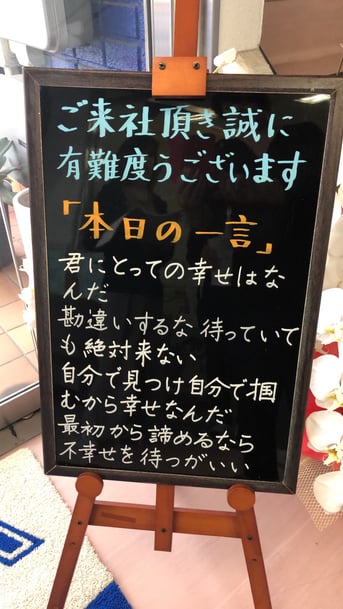 ご来社頂き誠に
有難度うございます
「本日の一言」
君にとっての幸せはな
んだ
勘違いするな 待っていて
も絶対来ない
自分で見つけ自分で掴
むから幸せなんだ
最初から諦めるなら
不幸せを待つがいい